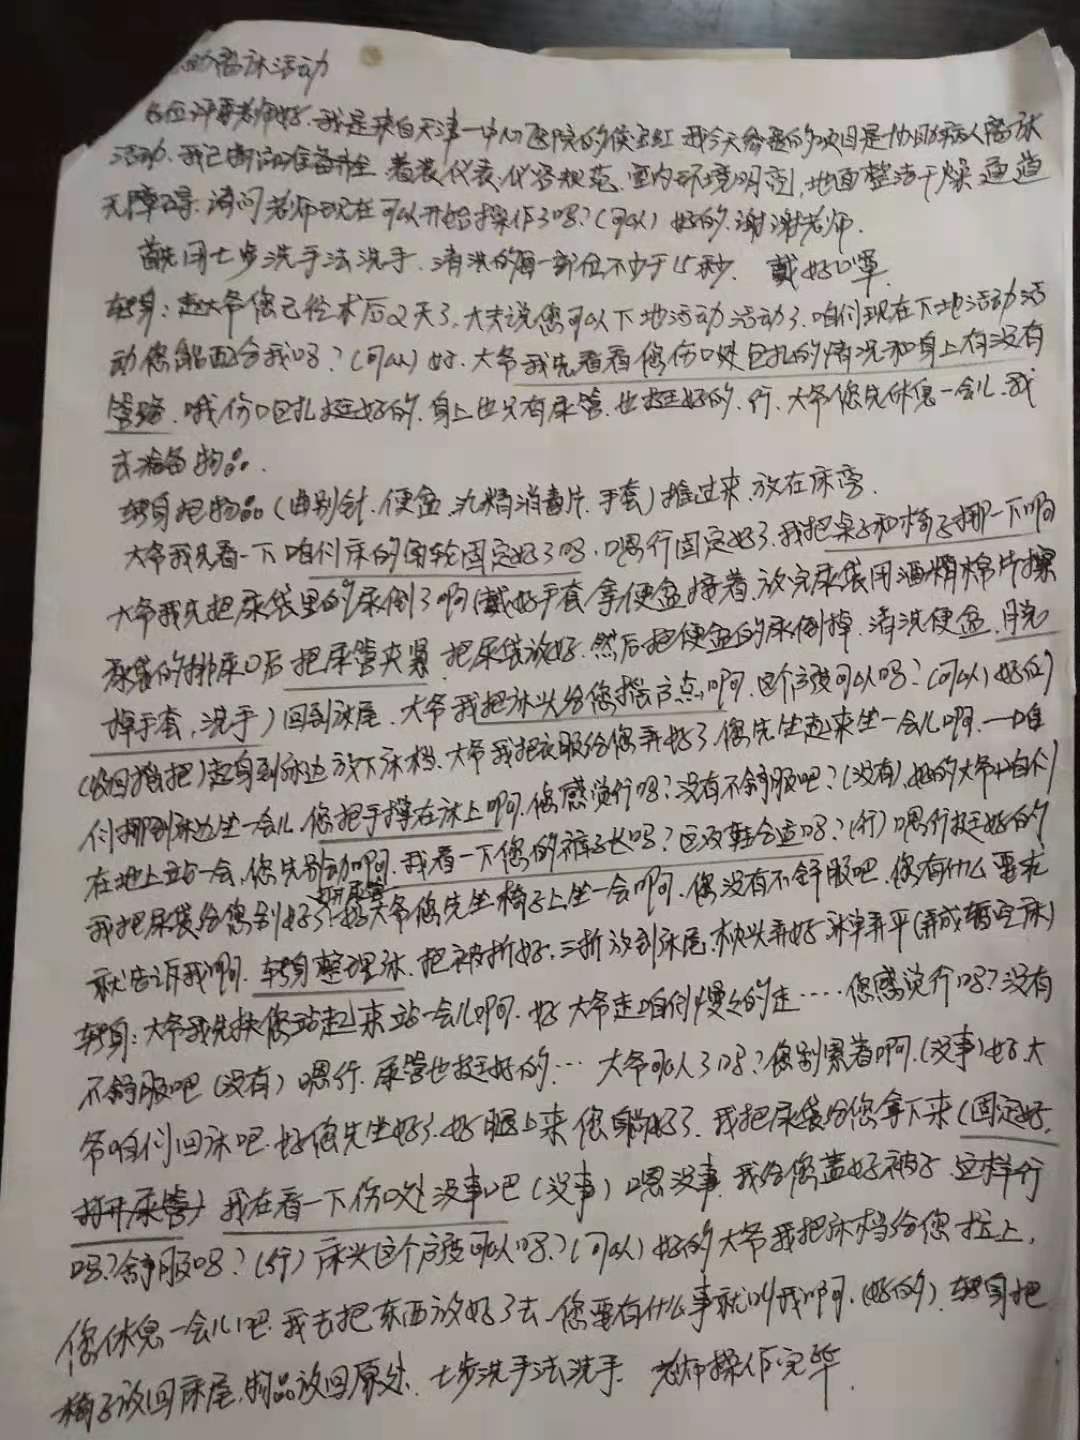 助离床活动
各位评委老师好.我是来自天津一中心医院的侯宝红 我今天参赛的项目是协助病人离床
活动.我已 准备齐全 着装仪表.仪容规范.室内环境明亮,地面整洁干燥通道
无障碍.请问老师现在可以开始操作了吗?(可以)好的.谢谢老师.
首先用七步洗手法洗手.清洗的每一部位不少于15秒. 戴好口罩
转身:赵大爷您已经术后2天了.大夫说您可以下地活动活动了.咱们现在下地活动活
动您能配合我吗?(可以)好.大爷我先看看您伤口处包扎的情况和身上有没有
管路.哦伤口包扎挺好的.身上也只有尿管.也挺好的.行.大爷您先休息一会儿.我
去准备物品.
转身把物品(曲别针.便盆. 消毒片.手套)推过来.放在床旁.
大爷我先看一下咱们床的角轮固定好了吗.嗯行固定好了.我把桌子和椅子挪一下啊
大爷我先把尿袋里的尿倒了啊(戴好手套拿便盆接着.放完尿袋用酒精棉片擦
尿袋的排尿口后把尿管夹紧.把尿袋放好.然后把便盆的尿倒掉.清洗便盆.脱
掉手套,洗手)回到床尾.大爷我把床头给您摇高点啊.这个高度可以吗?(可以)好的
(收回摇把)起身到床边放下床档.大爷我把衣服给您弄好了.您先坐起来坐一会儿啊.一咱
们挪到床边坐一会儿.您把手撑在床上啊.您感觉行吗?没有不舒服吧?(没有).好的大爷咱们
在地上站一会,您先别动啊.我看一下您的裤子长吗?这双鞋合适吗?(行)嗯行挺好的
打开尿管
我把尿袋给您别好了.好大爷您先坐椅子上坐一会啊.您没有不舒服吧.您有什么要求
就告诉我啊.转身整理床.把被折好.三折放到床尾.枕头弄好床单弄平(弄成暂空床)
转身:大爷我先扶您站起来站一会儿啊.好大爷走咱们慢慢的走……您感觉行吗?没有
不舒服吧(没有)嗯行.尿管也挺好的…大爷可以了吗?您别累着啊.(没事)好.大
爷咱们回床吧.好您先坐好了.好腿上来您躺好了.我把尿袋给您拿下来(固定好.
打开尿管)我在看一下伤口处没事吧(没事)嗯没事.我给您盖好被子.这样行
吗?舒服吗?(行)床头这个高度可以吗?(可以)好的大爷我把床档给您拉上.
您休息一会儿吧.我去把东西放好了去.您要有什么事就叫我啊.(好的).转身把
椅子放回床尾.物品放回原处.七步洗手法洗手. 老师操作完毕.